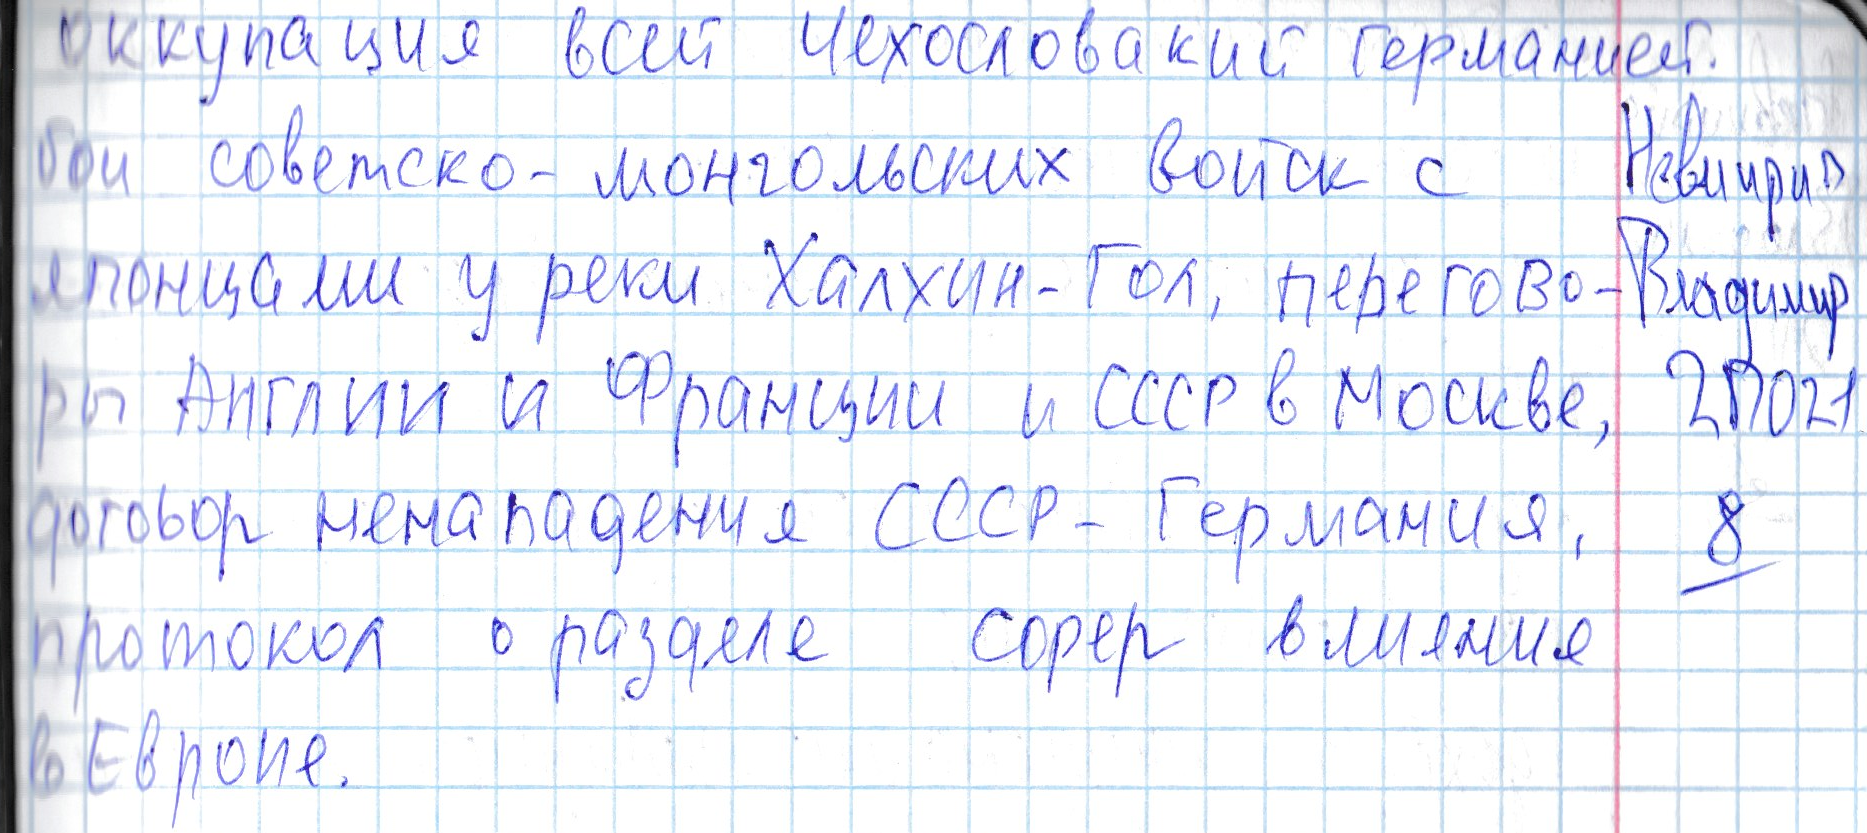 оккупация всей Чехословакий Германией.
бои советско-монгольских войск с
японцами у реки Халхин-Гол, перегово-
ры Англии и Франции и СССР в Москве,
договор ненападения СССР- Германия,
протокол о разделе сфер влияния
в Европе.
Владимир
2П021
8